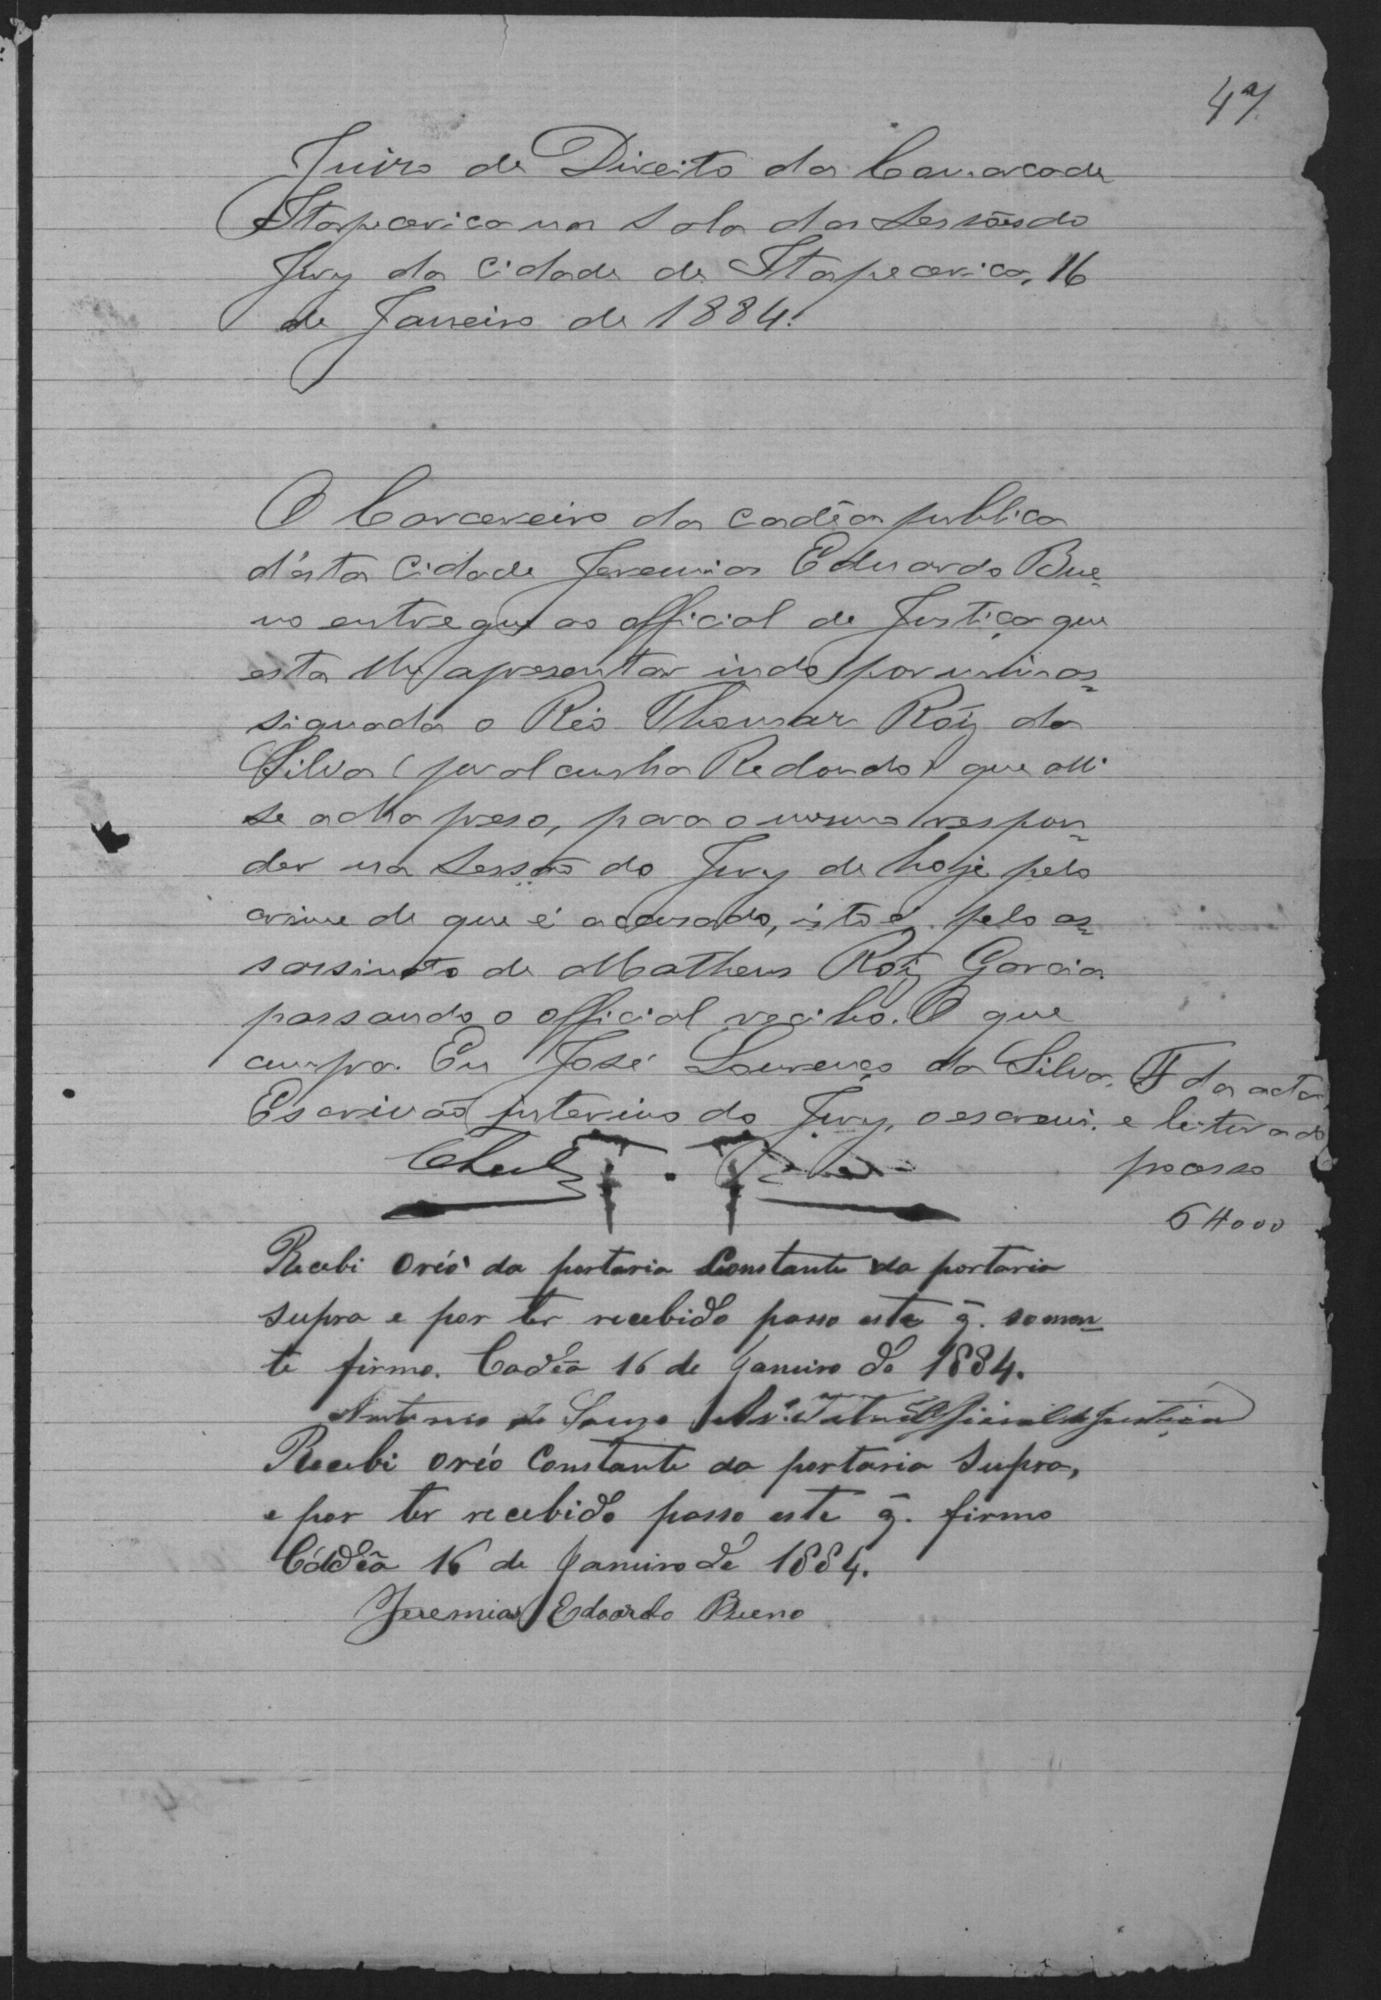 47
Juizo de Direito da Comarca de
Itapecerica na Sala das Sessões do
Jury da Cidade de Itapecerica, 16
de Janeiro de 1884.
O Carcereiro da cadêa publica
d'ésta Cidade Jeremias Eduardo Bue-
no entregue ao official de Justiça que
esta lhe apresentar indo por mim as-
signada o Réo Thomaz Roiz da
Silva (por alcunha Redondo) que alli
se acha preso, para o mesmo respon-
der na Sessão do Jury de hoje pelo
crime de que é acusado, isto é, pelo as-
sassinato de Matheus Roiz Garcia
passando o official recibo. O que
cumpra. Eu José Lourenço da Silva,
Escrivão interino do Jury, o escrevi.
da acta
e leitura do
processo
6$000
Recebi o réo da portaria Constante da portaria
supra e por ter recebido passo este q. somen-
te firmo. Cadêa 16 de Janeiro de 1884.
Antonio de Souza Official de Justiça
Recebi o réo Constante da portaria Supra,
e por ter recebido passo este q. firmo
Cadêa 16 de Janeiro de 1884.
Jeremias Edoardo Bueno